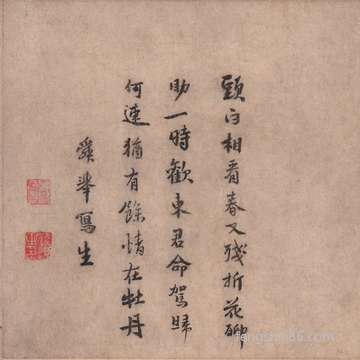 頭白相看春又殘折花聊
助一時歡東君命駕歸
何速猶有餘情在牡丹
舜舉寫生
fengsui86.com